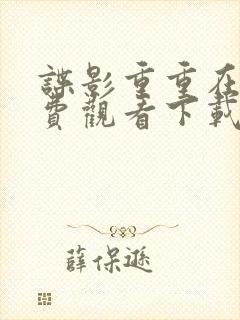 諜影重重在
費觀看下載
薛保遜